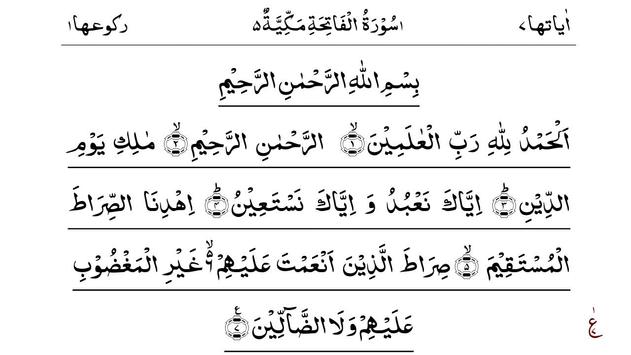 اٰیاتها۷ ۱سُوْرَةُ الْفَاتِحَةِ مَكِّیَّةٌ۵ رکوعها۱
بِسْمِ اللّٰهِ الرَّحْمٰنِ الرَّحِیْمِ
اَلْحَمْدُ لِلّٰهِ رَبِّ الْعٰلَمِیْنَۙ۝۱ الرَّحْمٰنِ الرَّحِیْمِۙ۝۲ مٰلِكِ یَوْمِ
الدِّیْنِؕ۝۳ اِیَّاكَ نَعْبُدُ وَ اِیَّاكَ نَسْتَعِیْنُؕ۝۴ اِهْدِنَا الصِّرَاطَ
الْمُسْتَقِیْمَۙ۝۵ صِرَاطَ الَّذِیْنَ اَنْعَمْتَ عَلَیْهِمْ۬ۙ۬۝۶ غَیْرِ الْمَغْضُوْبِ
عَلَیْهِمْ وَ لَا الضَّآلِّیْنَ۠۝۷
ع